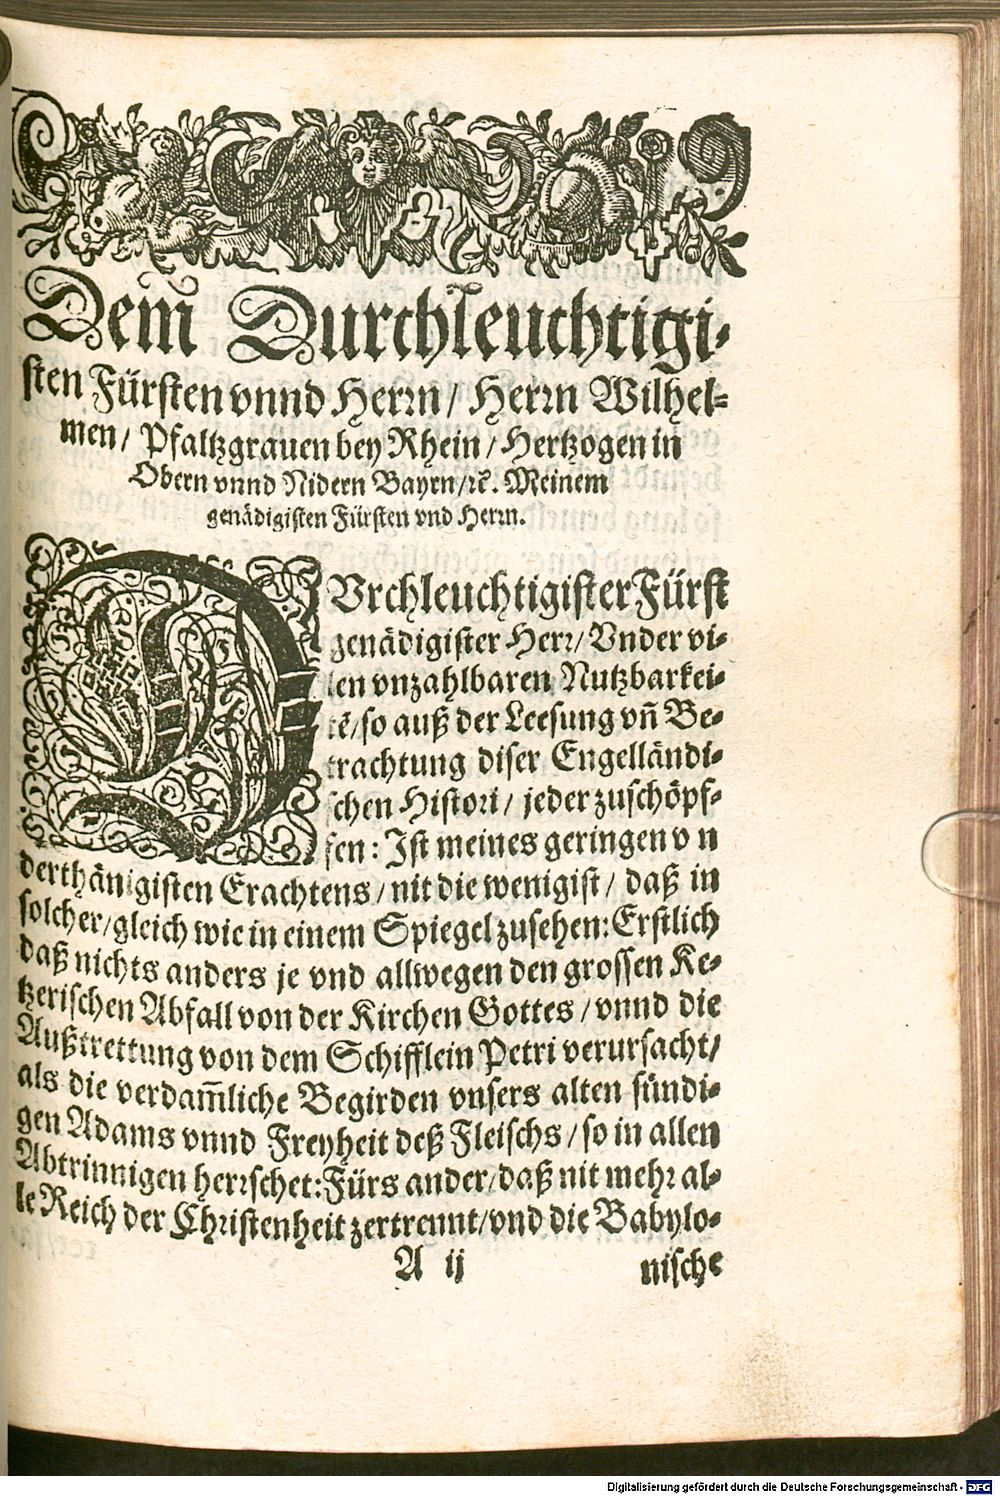 Dem Durchleuchtigi-
sten Fürsten vnnd Herrn/ Herrn Wilhel-
men/ Pfaltzgrauen bey Rhein/ Hertzogen in
Obern vnnd Nidern Bayrn/ꝛc. Meinem
genädigisten Fürsten vnd Herrn.
DVrchleuchtigister Fürst
genädigister Herr/ Vnder vi-
len vnzahlbaren Nutzbarkei-
tē/ so auß der Leesung vn̄ Be-
trachtung diser Engelländi-
schen Histori/ jeder zuschöpf-
fen: Ist meines geringen v n
derthänigisten Erachtens/ nit die wenigist/ daß in
solcher/ gleich wie in einem Spiegel zusehen: Erstlich
daß nichts anders je vnd allwegen den grossen Ke-
tzerischen Abfall von der Kirchen Gottes/ vnnd die
Außtrettung von dem Schifflein Petri verursacht/
als die verdam̄liche Begirden vnsers alten sündi-
gen Adams vnnd Freyheit deß Fleischs/ so in allen
Abtrinnigen herrschet: Fürs ander/ daß nit mehr al-
le Reich der Christenheit zertrennt/ vnd die Babylo-
A ij nische
Digitalisierung gefördert durch die Deutsche Forschungsgemeinschaft - DFG